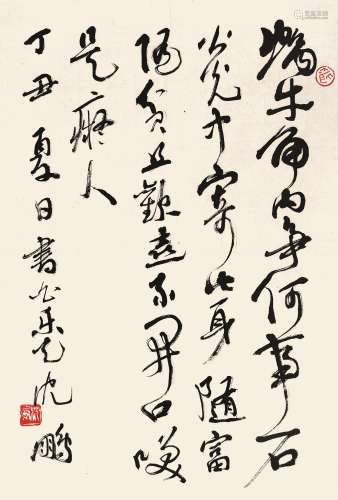 蝸牛角内爭何事石
火光中寄此身隨富
隨貧且歡喜不開口咲
是癡人
丁丑夏日書白樂天沈鵬